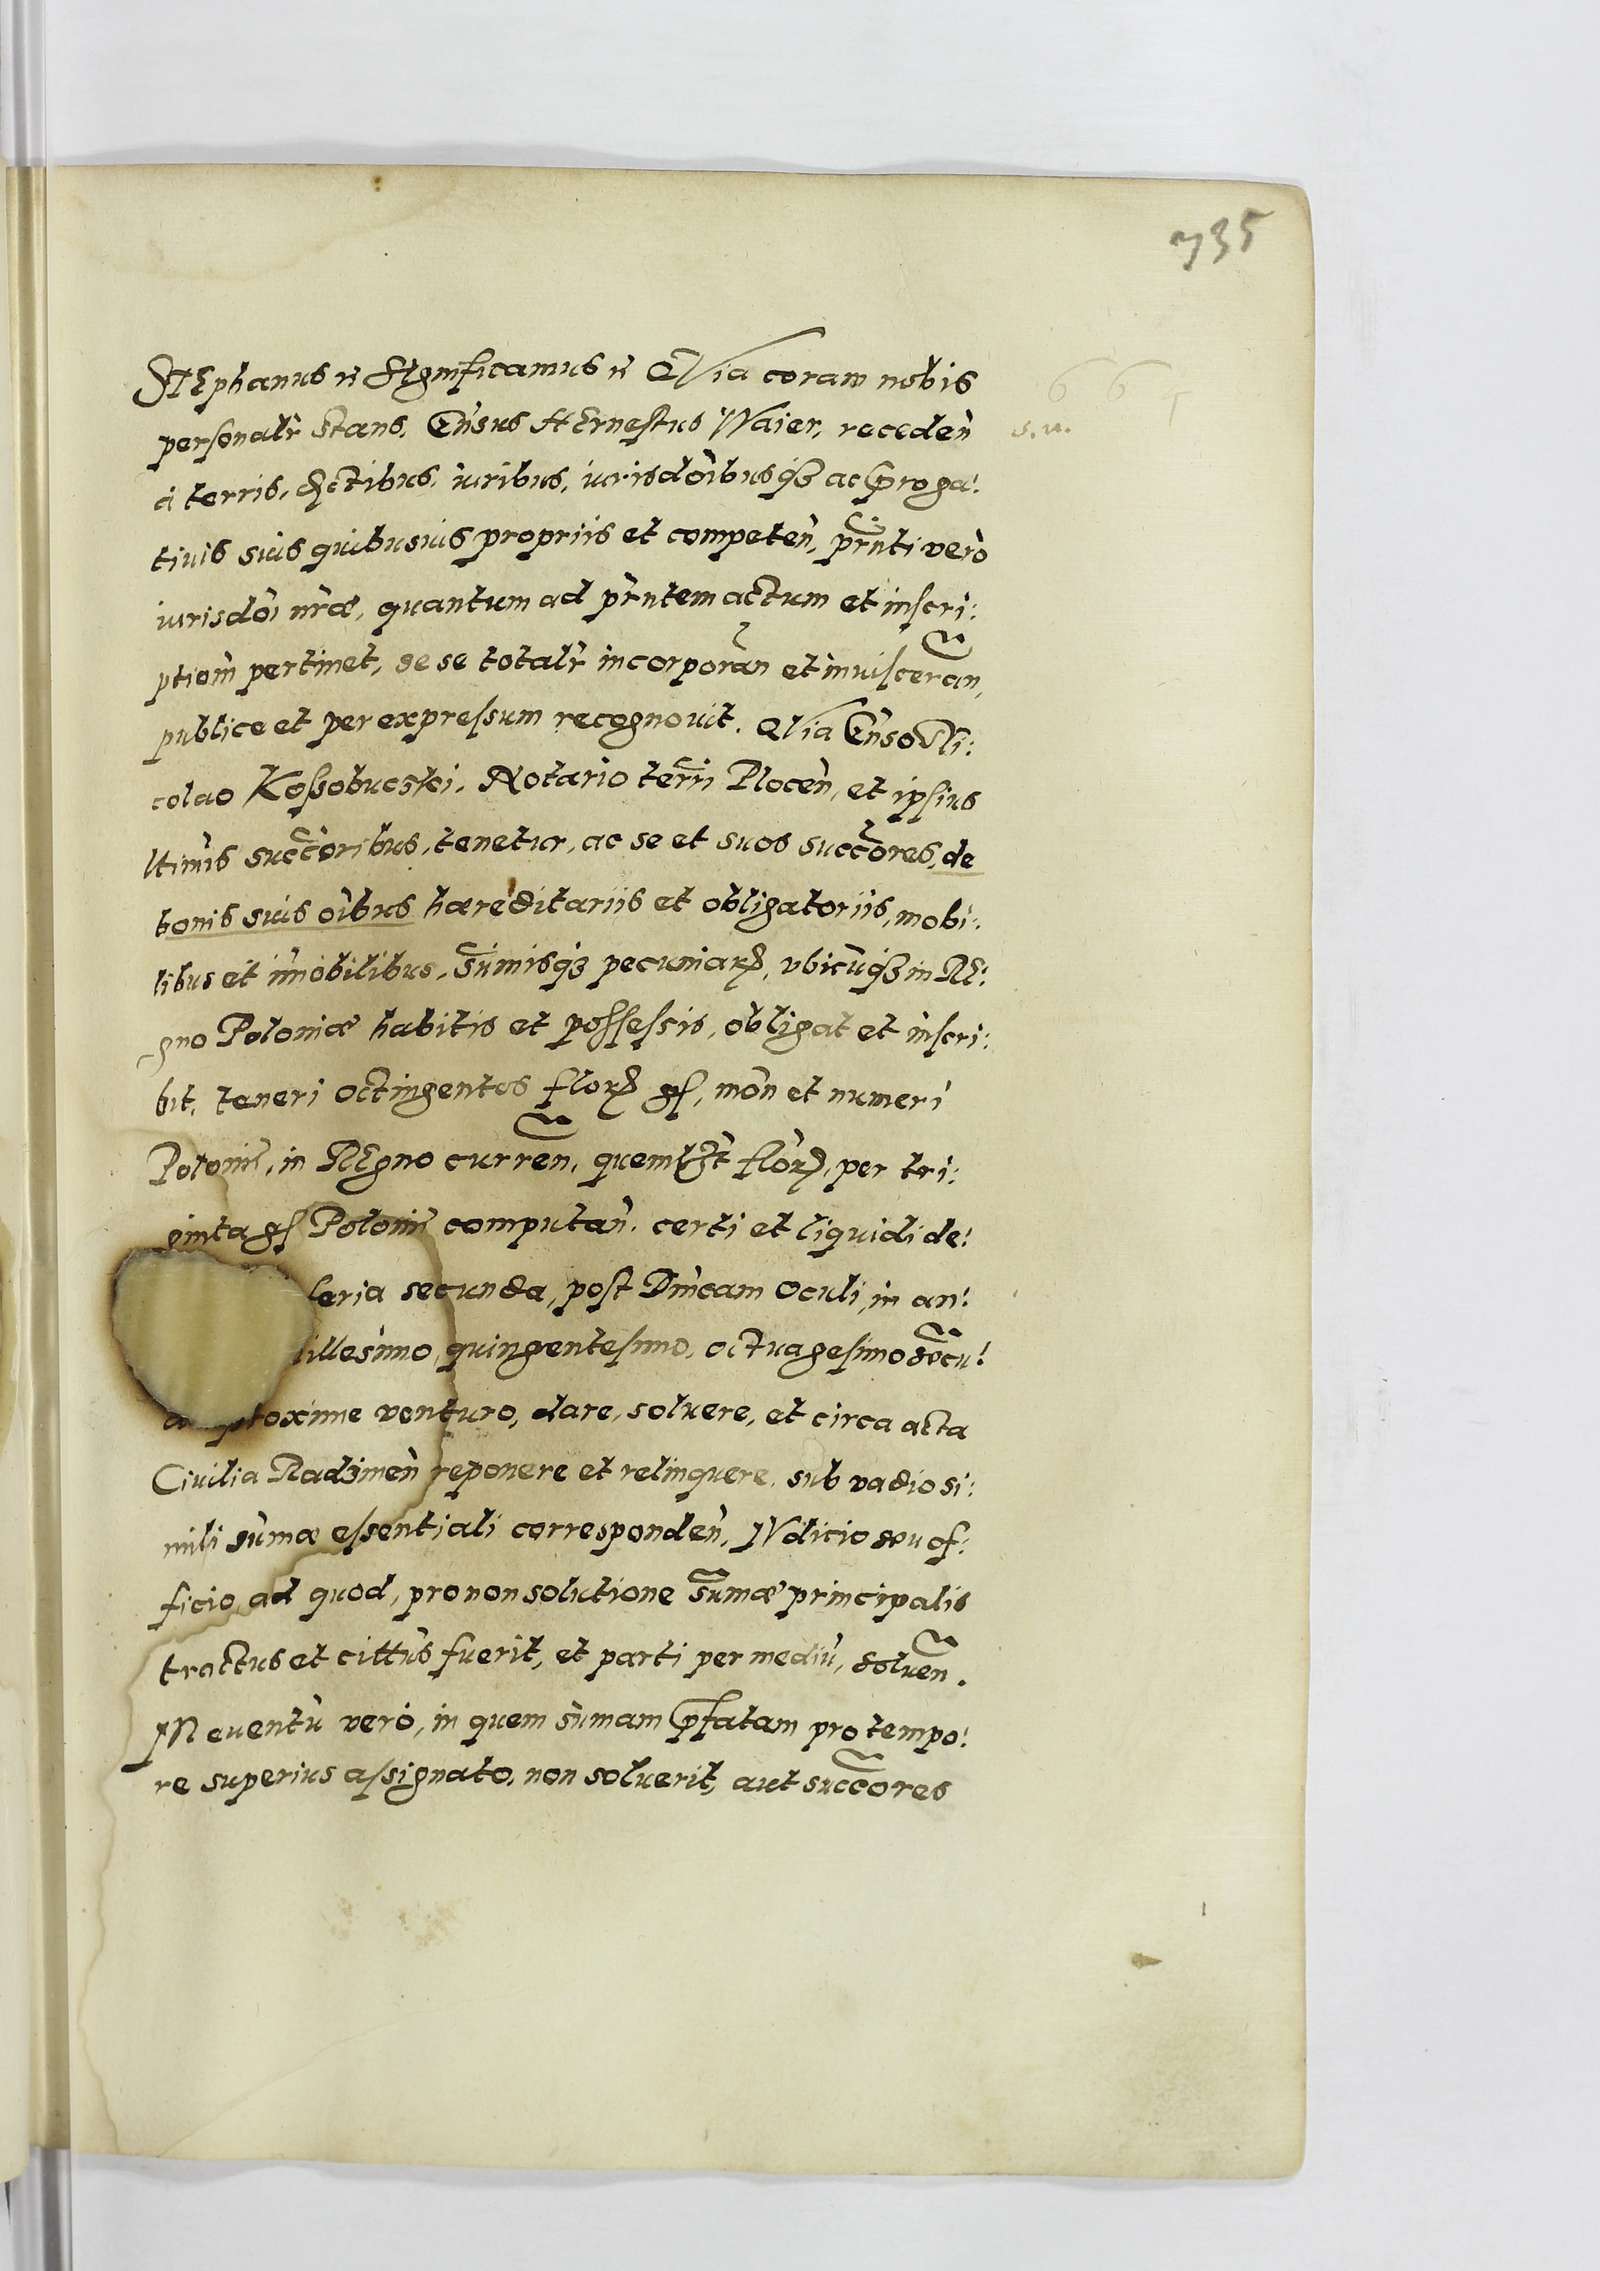 735
STEphanus n SIgnificamus n QVia coram nobis
6 6 1
personalr stans, Gnsus HErnestus Waier, recedèn
s. u.
à terris, dctibus, iuribus, iurisdoibusq3 ac proga:
tiuis suis quibusuis propriis et competèn, prnti verò
iurisdoi nrae, quantum ad prntem actum et inscri:
ptiom pertinet, se se totalr incorporan et inuisceran,
publice et per expressum recognouit. QVia Gnso Ni:
colao Kossobucski, Notario terri Plocèn, et ipsius
ltimis succoribus, tenetur, ac se et suos succores, de
bonis suis oibus haereditariis et obligatoriis, mobi:
libus et imobilibus, sumisq3 pecuniar, vbicuq3 in RE:
gno Poloniae habitis et possessis, obligat et inscri:
bit, teneri octingentos flor gs, mon et numeri
Polonii, in REgno curren, quemlt flor, per tri:
ginta gs Polonii computan, certi et liquidi de:
feria secunda, post Dnicam Oculi, in an:
illesimo quingentesimo, octuagesimo secu:
proxime venturo, dare, soluere, et circa acta
Ciuilia Radzimèn reponere et relinquere, sub vadio si:
mili sumae essentiali correspondèn, IVdicio seu of:
ficio, ad quod, pro non solutione sumae principalis
tractus et cittus fuerit, et parti per mediu, soluen.
IN euentu verò, in quem sumam pfatam pro tempo:
re superius assignato, non soluerit, aut succores